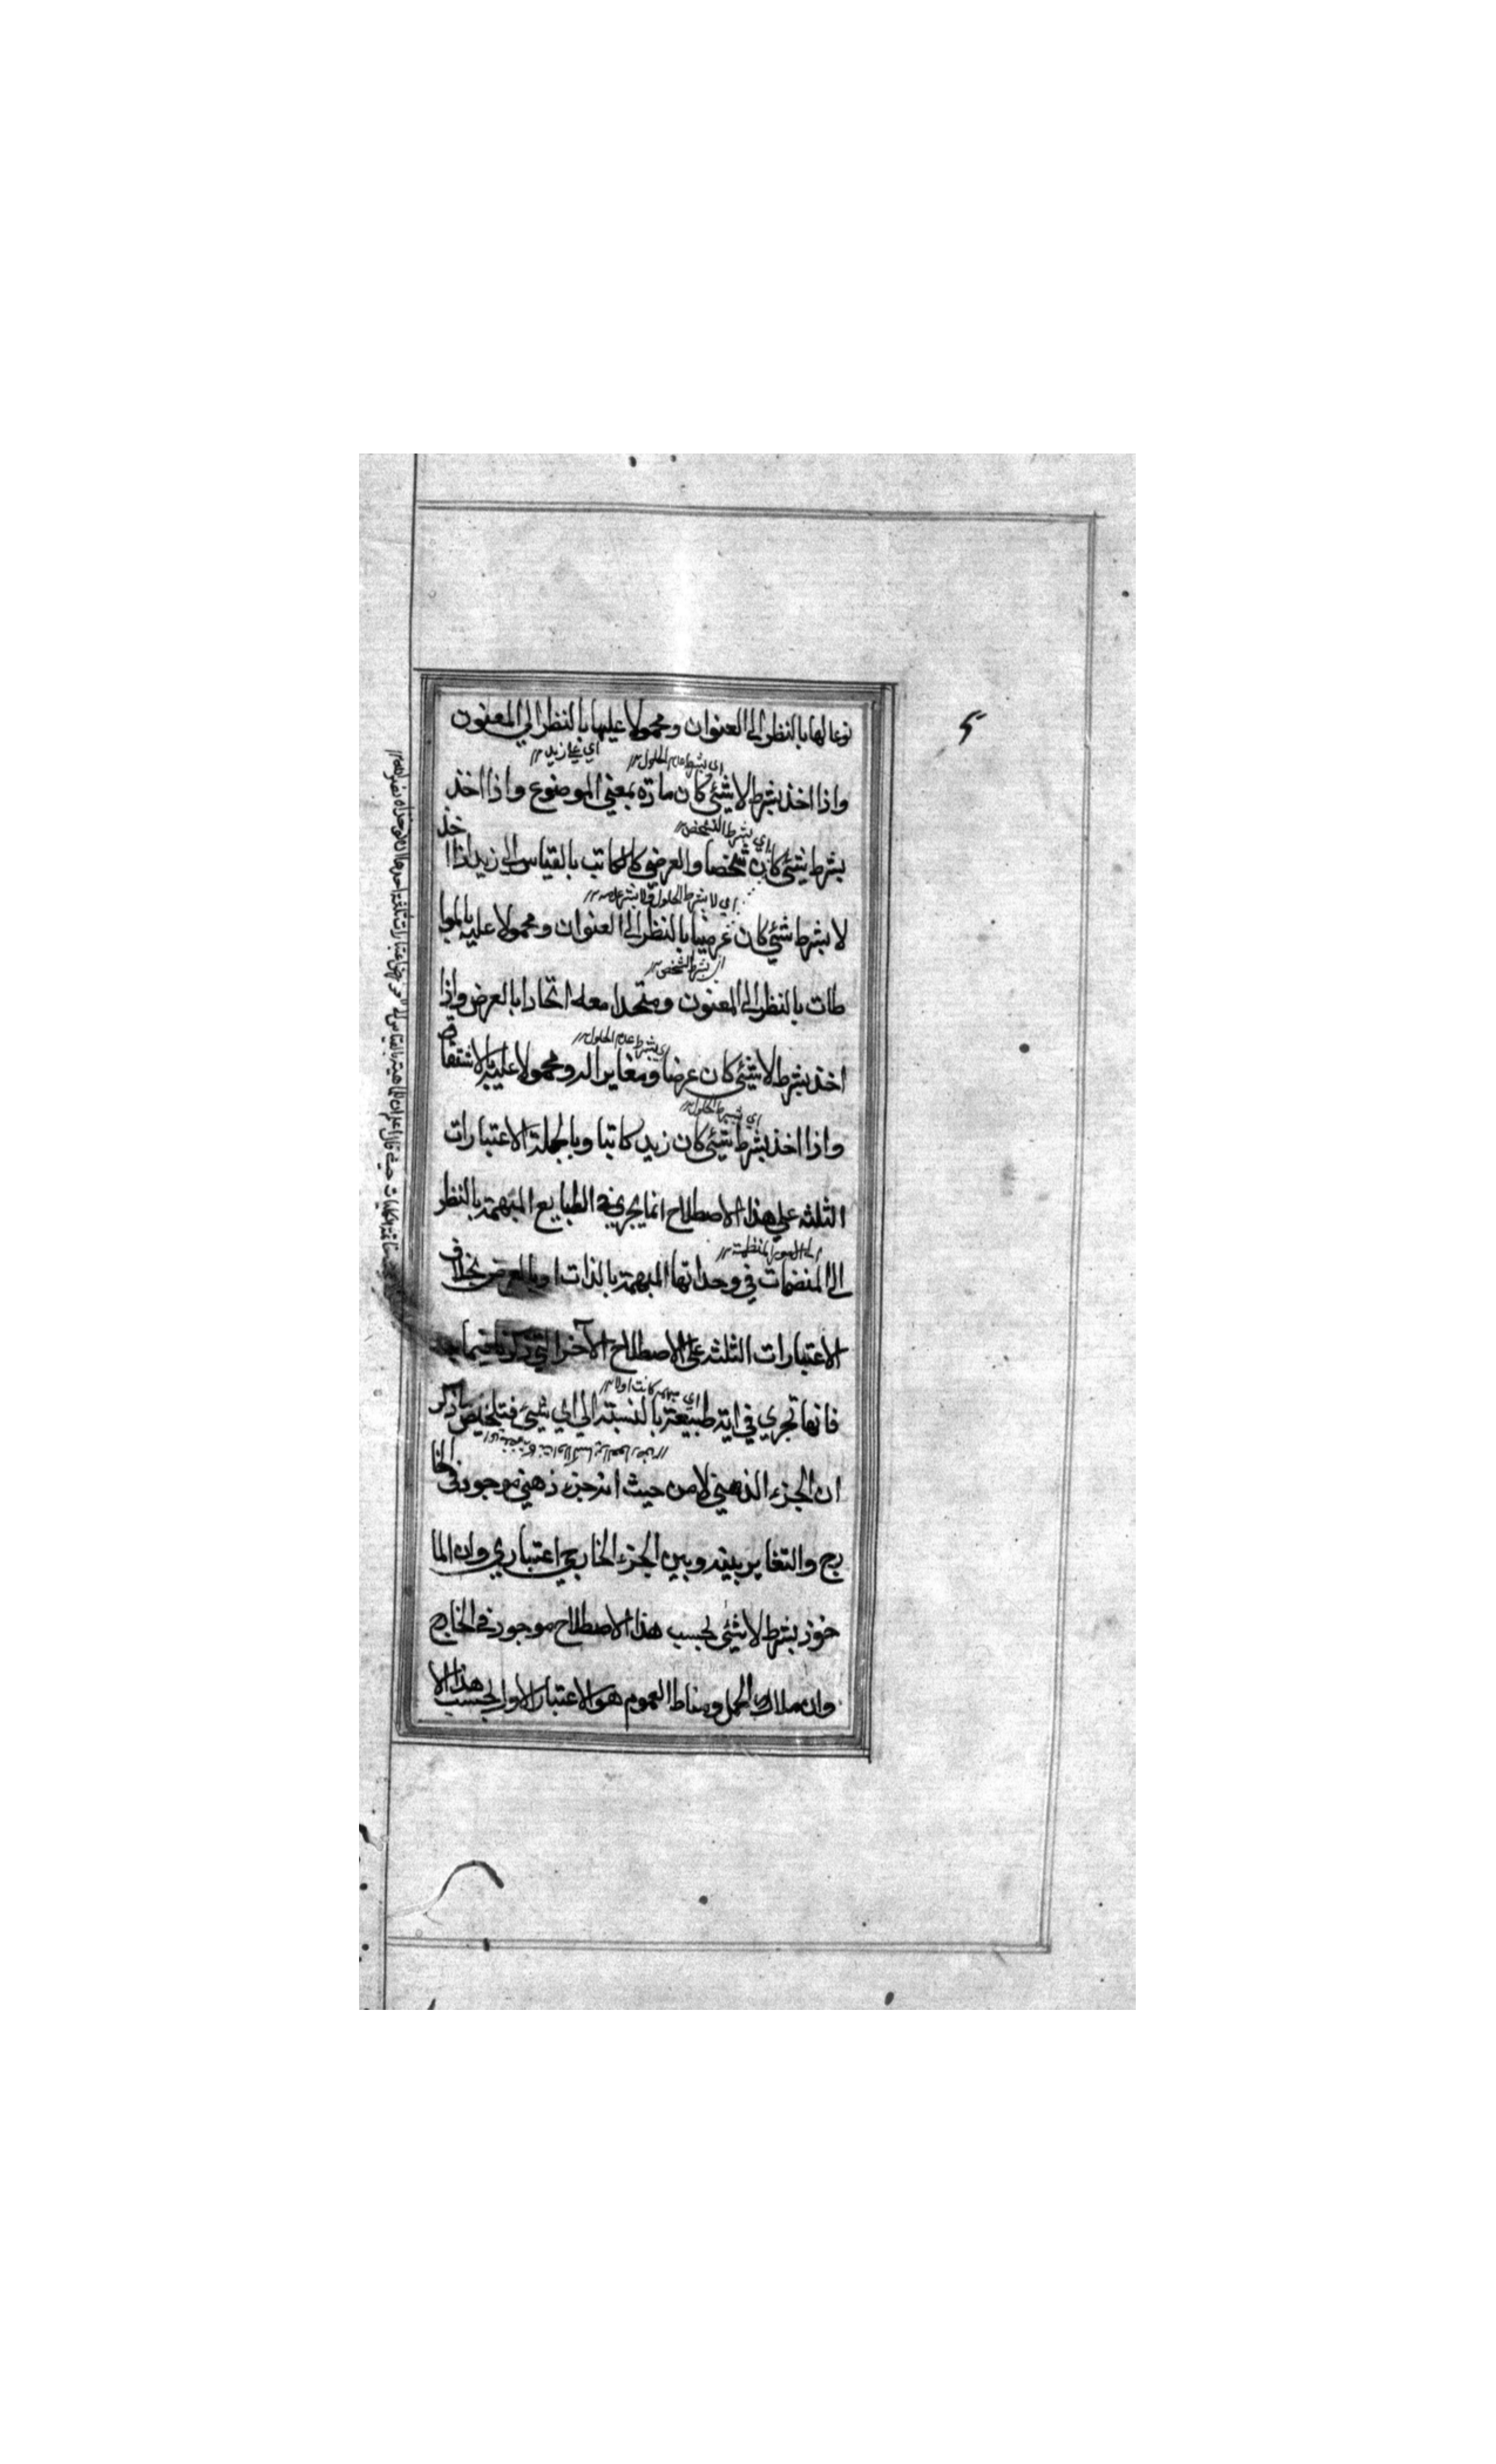 نوعا لها بالنظر الى العنوان ومحمولا عليها بالنظر الي المعنون
اي علي زيد
اي بشرط عدم الحلول
واذا اخذ بشرط لا شئي كان مادة بمعني الموضوع واذا اخذ
اي بشرط التشخص
بشرط شئي كان شخصا والعرضي كالكاتب بالقياس الى زيد اذا اخذ
اي لا بشرط الحلول
لا بشرط شئي كان عرضيا بالنظر الى العنوان ومحمولا عليه بالموا
طات بالنظر الى المعنون ومتحدا معه اتحادا بالعرض واذا
اي بشرط عدم الحلول
اخذ بشرط لا شئي كان عرضا ومغايرا له ومحمولا عليه بالاشتقاق
اي بشرط الحلول
واذا اخذ بشرط شئي كان زيد كاتبا وبالجملة الاعتبارات
الثلثه علي هذا الاصطلاح انما يجري في الطبايع المبهمة بالنظر
الى المنضمات في وحداتها المبهمة بالذات او بالعرض بخلاف
الاعتبارات الثلثه على الاصطلاح الآخر التي ذكرنا فيما
اي مبهمه كانت اولا
فانها تجري في اية طبيعة بالنسبة الي اي شيئ فتلخيص ما ذكر
ان الجزء الذهني لا من حيث انه جزء ذهني موجود في الخا
رج والتغاير بينه وبين الجزء الخارجي اعتباري وان الما
خوذ بشرط لا شئي بحسب هذا الاصطلاح موجود في الخارج
وان ملاك الحمل ومناط العموم هو الاعتبار الاول بحسب هذا الا